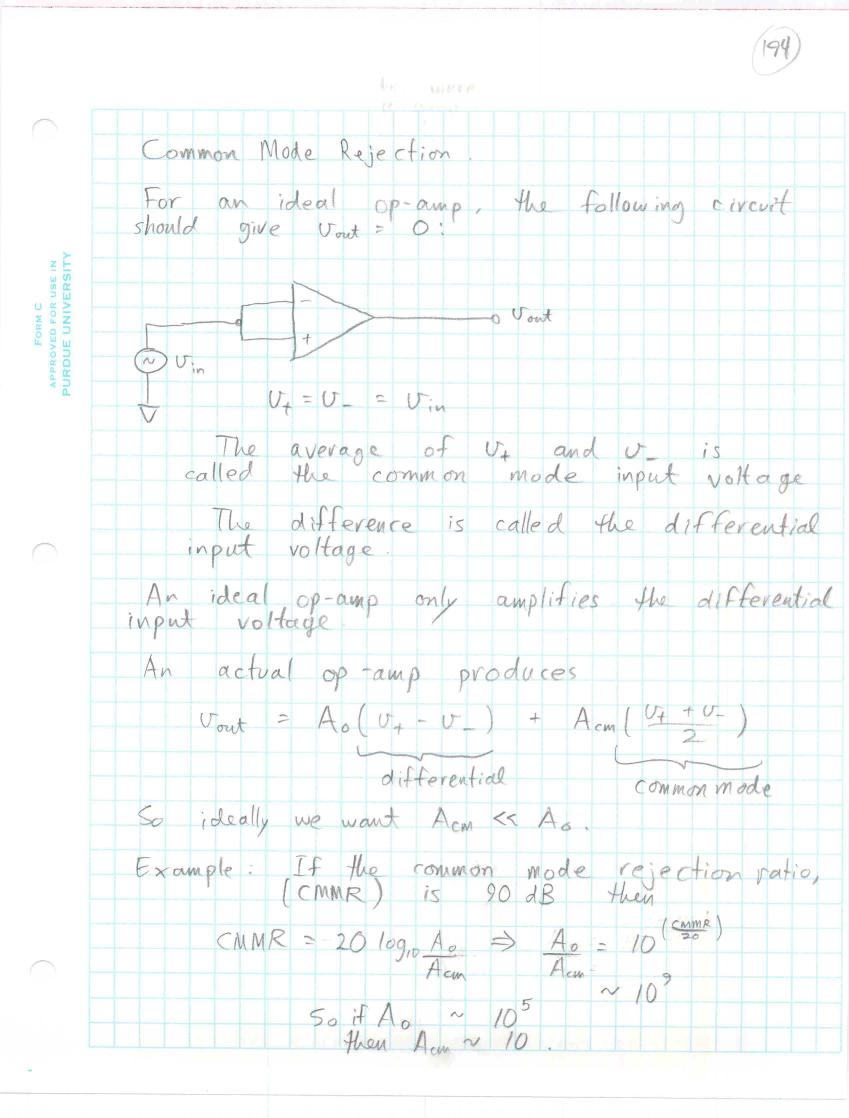 194
Common Mode Rejection.
For an ideal op-amp, the following circuit
should give Vout = 0:
FORM C
APPROVED FOR USE IN
PURDUE UNIVERSITY
−
+
Vout
~ Vin
V+ = V− = Vin
The average of V+ and V− is
called the common mode input voltage
The difference is called the differential
input voltage.
An ideal op-amp only amplifies the differential
input voltage.
An actual op-amp produces
Vout = Ao(V+ − V−) + Acm((V+ + V−)/2)
differential
common mode
So ideally we want Acm << Ao.
Example: If the common mode rejection ratio,
(CMMR) is 90 dB then
CMMR = 20 log10 Ao/Acm ⇒ Ao/Acm = 10^(CMMR/20)
~ 10^9
So if Ao ~ 10^5
then Acm ~ 10.